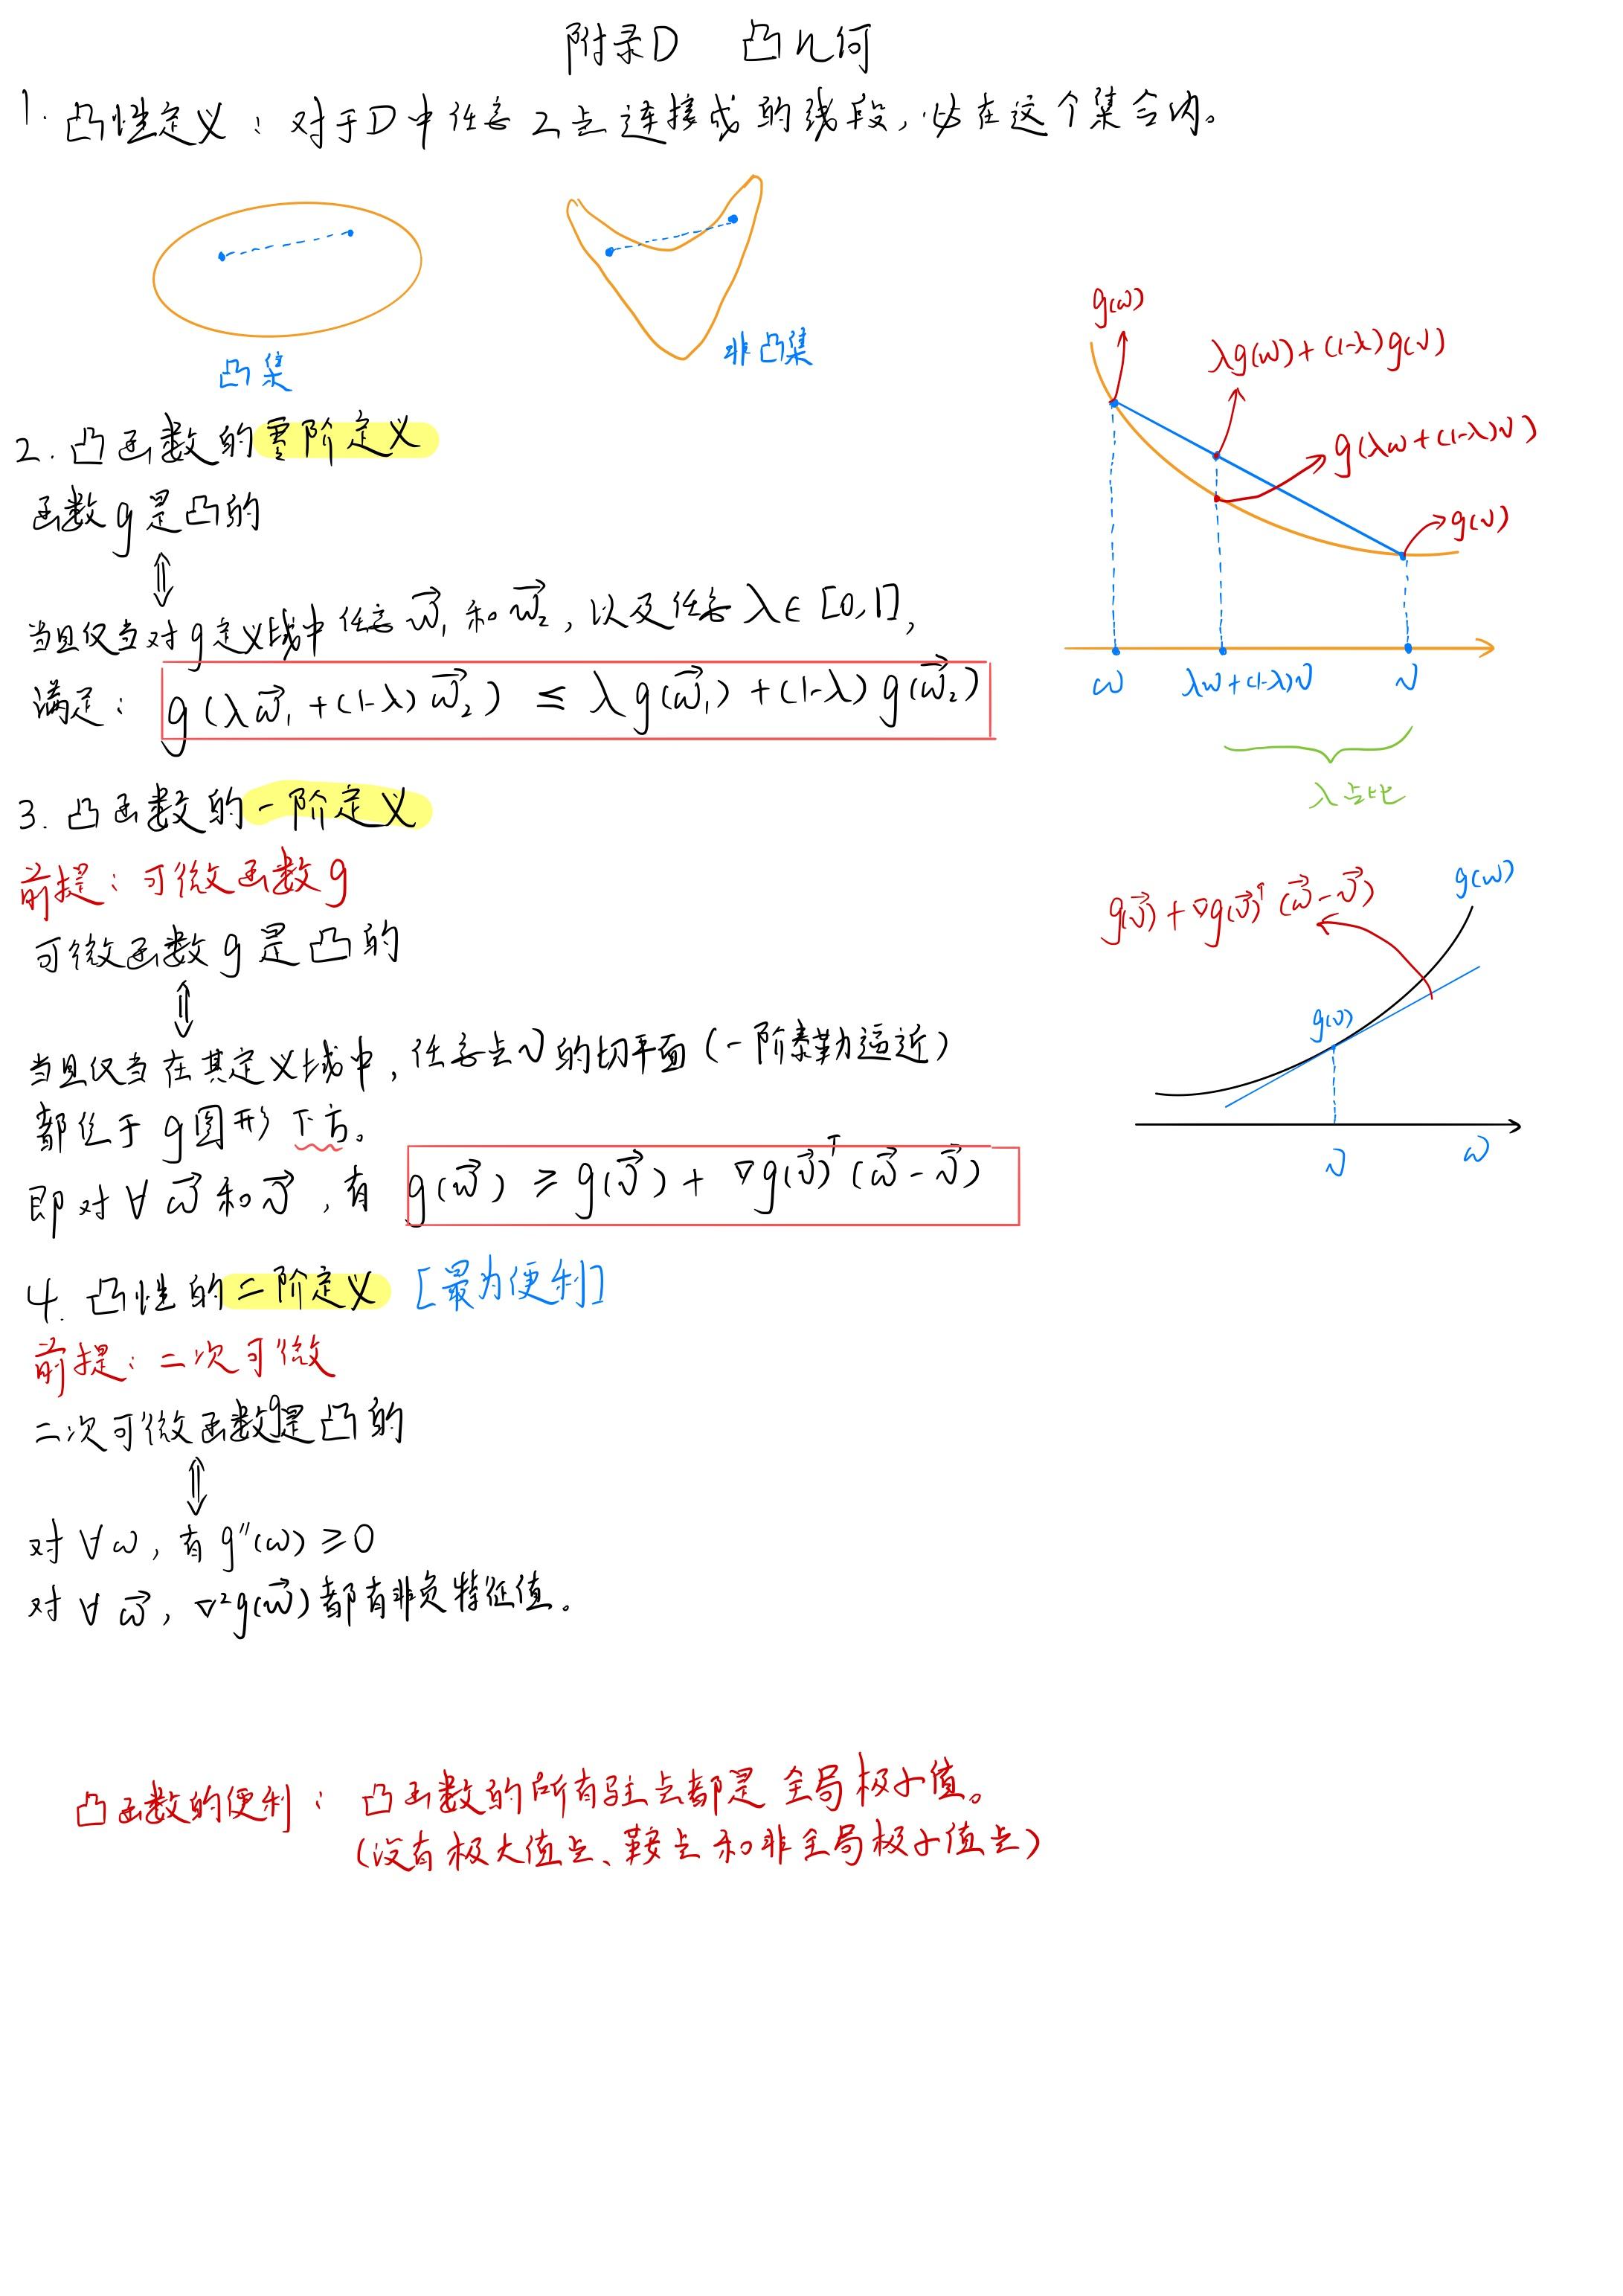 附录D 凸几何
1. 凸性定义：对于D中任意2点连接成的线段，必在这个集合内。
凸集
非凸集
2. 凸函数的零阶定义
函数g是凸的
⇕
当且仅当对g定义域中任意 w⃗₁ 和 w⃗₂，以及任意 λ∈[0,1]，
满足： g(λw⃗₁+(1-λ)w⃗₂) ≤ λg(w⃗₁)+(1-λ)g(w⃗₂)
g(w)
λg(w)+(1-λ)g(v)
g(λw+(1-λ)v)
g(v)
w λw+(1-λ)v v
λ占比
3. 凸函数的一阶定义
前提：可微函数g
可微函数g是凸的
⇕
当且仅当在其定义域中，任意点v的切平面（一阶泰勒逼近）
都位于g图形下方。
即对∀w⃗和v⃗，有 g(w⃗) ≥ g(v⃗) + ∇g(v⃗)ᵀ(w⃗-v⃗)
g(v⃗)+∇g(v⃗)ᵀ(w⃗-v⃗)
g(w)
g(v)
v w
4. 凸性的二阶定义 [最为便利]
前提：二次可微
二次可微函数g是凸的
⇕
对∀w，有g″(w)≥0
对∀w⃗，∇²g(w⃗)都有非负特征值。
凸函数的便利：凸函数的所有驻点都是全局极小值。
（没有极大值点、鞍点和非全局极小值点）